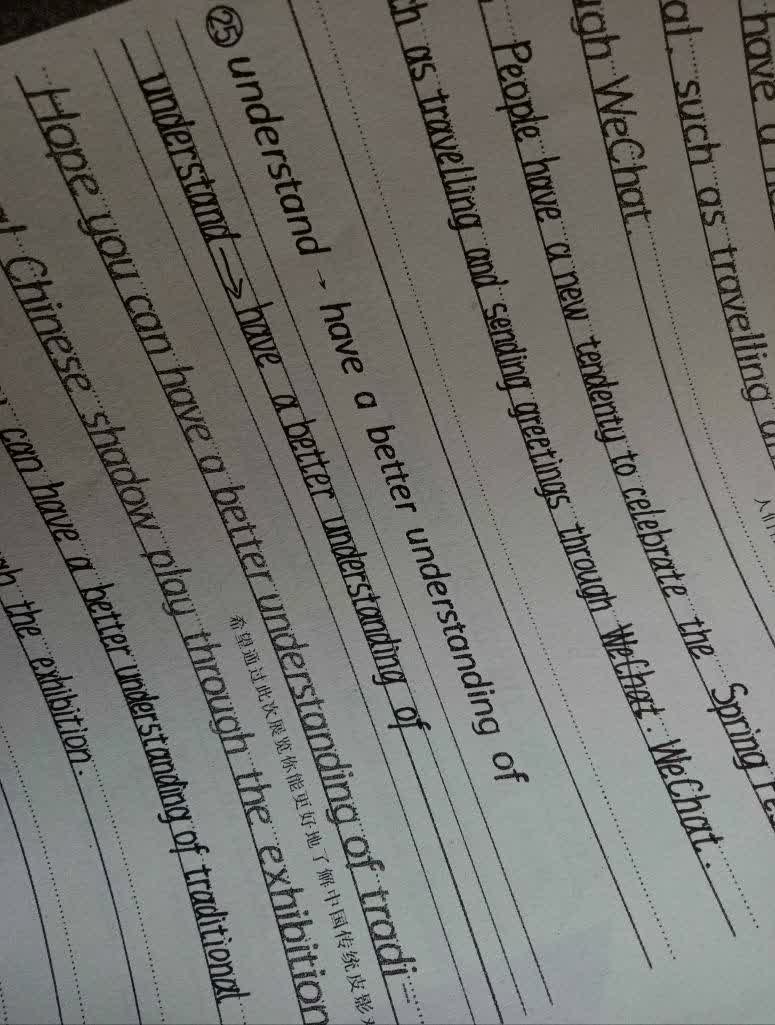 have a
such as travelling
人们
WeChat.
People have a new tendenty to celebrate the Spring
as travelling and sending greetings through WeChat. WeChat.
㉕ understand → have a better understanding of
understand → have a better understanding of
Hope you can have a better understanding of tradi-
希望通过此次展览你能更好地了解中国传统皮影
Chinese shadow play through the exhibition
can have a better understanding of traditional
the exhibition.